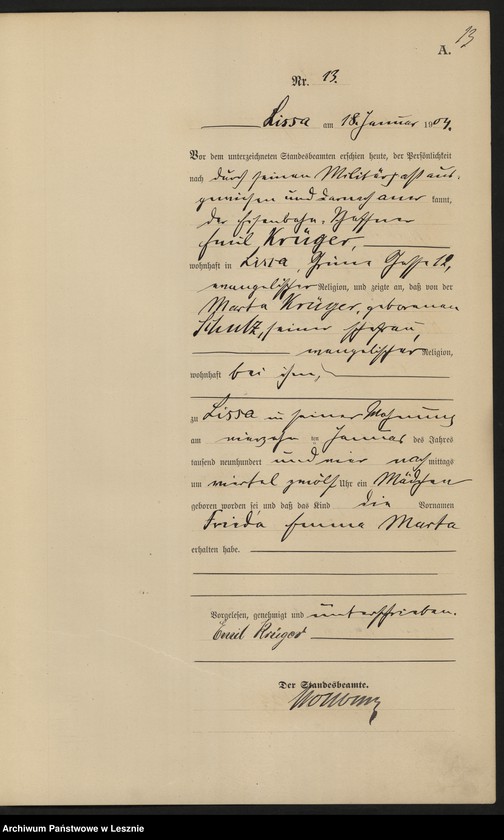 13
A.
Nr. 13.
Lissa am 18. Januar 1904.
Vor dem unterzeichneten Standesbeamten erschien heute, der Persönlichkeit
nach durch seinen Militärpaß aus-
gewiesen und darnach aner kannt,
der Eisenbahn-Schaffner
Emil Krüger,
wohnhaft in Lissa, Grüne Gasse 12,
evangelischer Religion, und zeigte an, daß von der
Marta Krüger, geborenen
Schulz, seiner Ehefrau,
evangelischer Religion,
wohnhaft bei ihm,
zu Lissa in seiner Wohnung
am vierzehn ten Januar des Jahres
tausend neunhundert und vier nach mittags
um viertel zwölf Uhr ein Mädchen
geboren worden sei und daß das Kind die Vornamen
Frieda Emma Marta
erhalten habe.
Vorgelesen, genehmigt und unterschrieben.
Emil Krüger
Der Standesbeamte.
Archiwum Państwowe w Lesznie